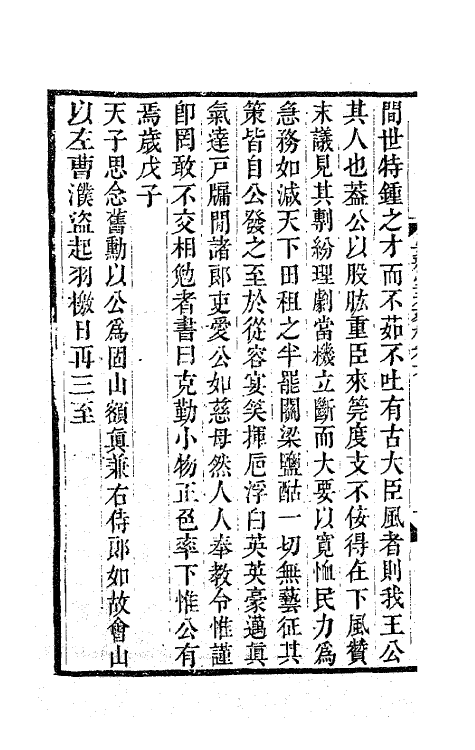 間世特鍾之才而不茹不吐有古大臣風者則我王公
其人也葢公以股肱重臣來筦度支不佞得在下風贊
末議見其剸紛理劇當機立斷而大要以寬恤民力爲
急務如減天下田租之半罷關梁鹽酤一切無藝征其
策皆自公發之至於從容宴笑揮巵浮白英英豪邁眞
氣達戸牖閒諸郞吏愛公如慈母然人人奉教令惟謹
卽罔敢不交相勉者書曰克勤小物正色率下惟公有
焉歲戊子
天子思念舊勳以公爲固山額眞兼右侍郞如故會山
以左曹濮盜起羽檄日再三至